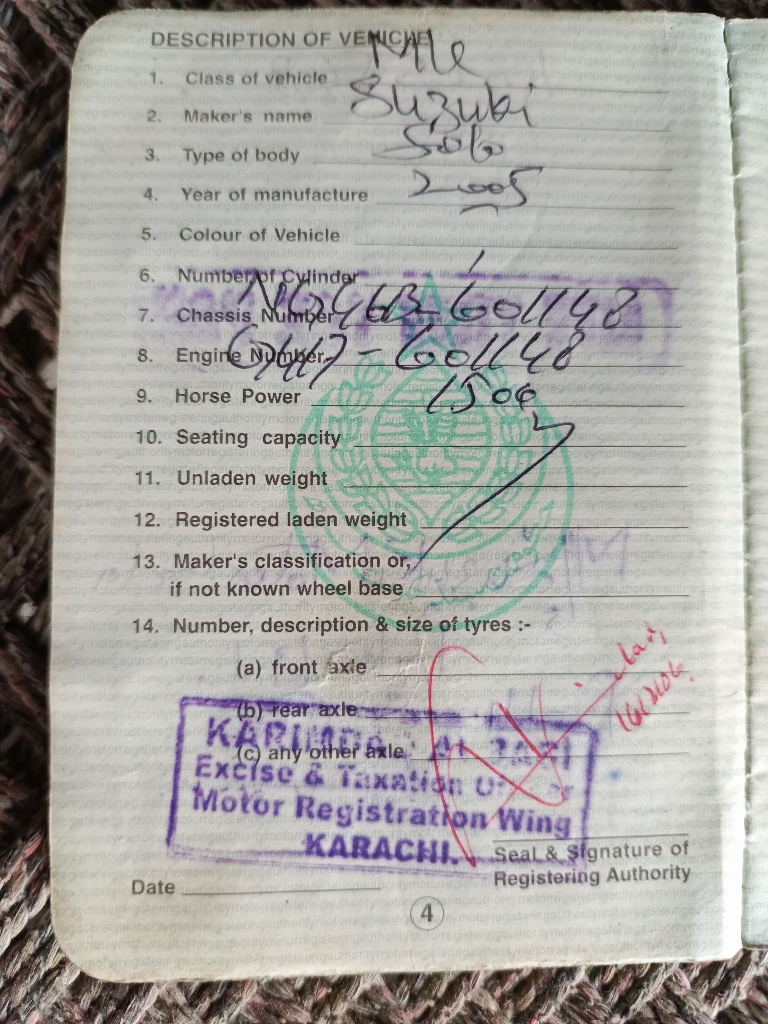 DESCRIPTION OF VEHICLE
1. Class of vehicle M/Cle
2. Maker's name Suzuki
3. Type of body Solo
4. Year of manufacture 2005
5. Colour of Vehicle
6. Number of Cylinder 1
7. Chassis Number 601148
8. Engine Number - 601148
9. Horse Power
10. Seating capacity
11. Unladen weight
12. Registered laden weight
13. Maker's classification or,
if not known wheel base
14. Number, description & size of tyres :-
(a) front axle
(b) rear axle
(c) any other axle
Excise & Taxation
Motor Registration Wing
KARACHI.
Seal & Signature of
Registering Authority
Date
4